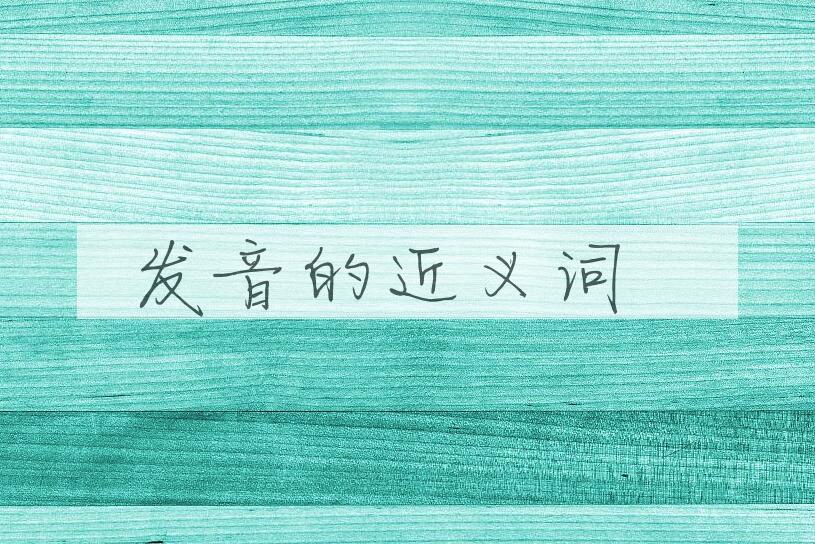 发音的近义词